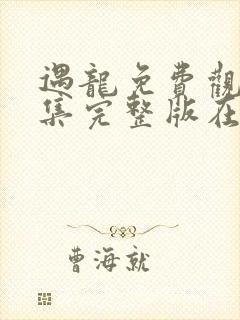 遇龍免費觀
集完整版在
曹海就